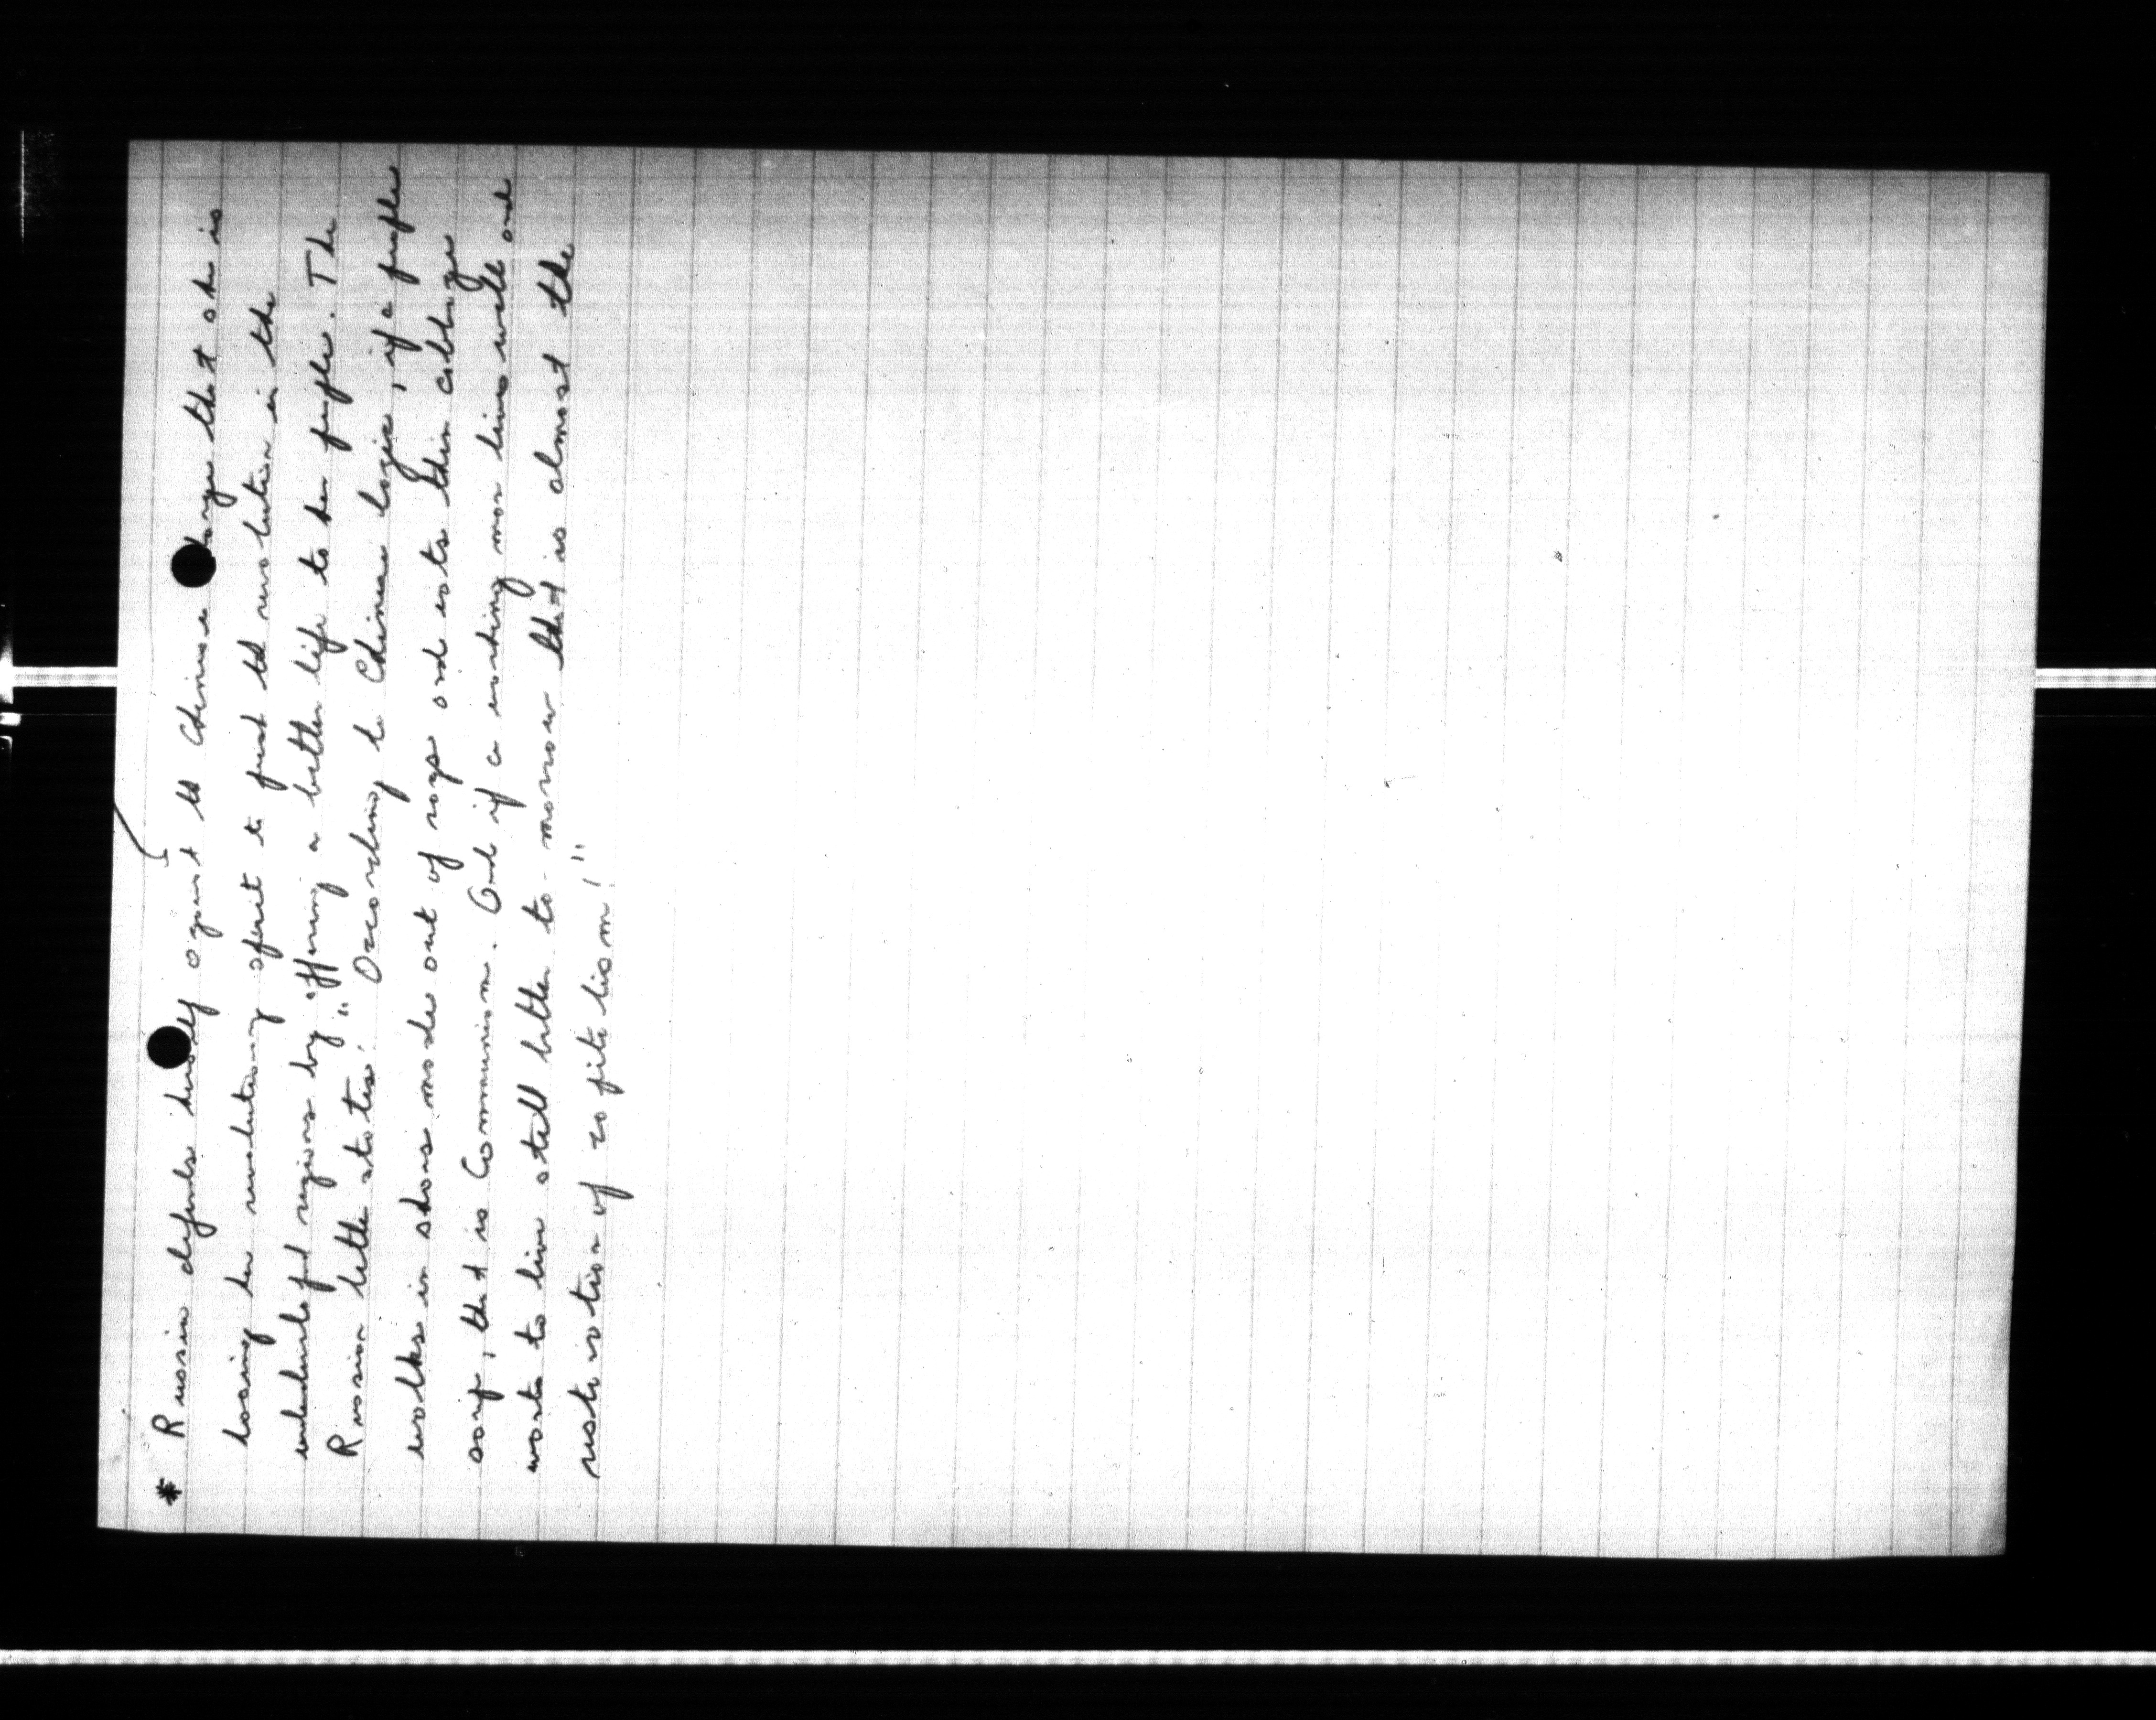 * Russia defends herself against the Chinese charge that she is
losing her revolutionary spirit to push the revolution in the
undeveloped regions by offering a better life to her people. The
Russian letter states: "According to Chinese logic, if a people
walks in shoes made out of rope and eats thin cabbage
soup, that is Communism. And if a working man lives well and
wants to live still better to-morrow that is almost the
restoration of capitalism!"